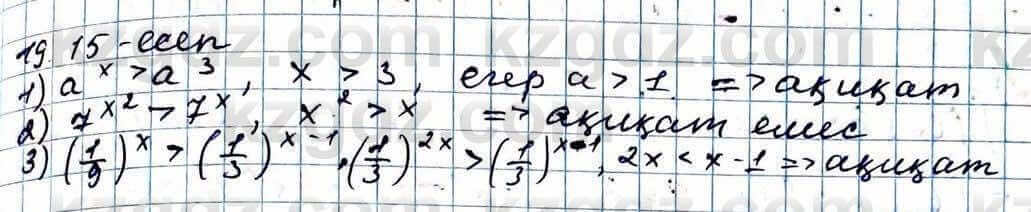 19.15-есеп
1) a^x > a^3, x > 3, егер a > 1 => ақиқат
2) 7^{x^2} > 7^x, x^2 > x => ақиқат емес
3) (1/9)^x > (1/3)^{x-1}, (1/3)^{2x} > (1/3)^{x-1}, 2x < x-1 => ақиқат